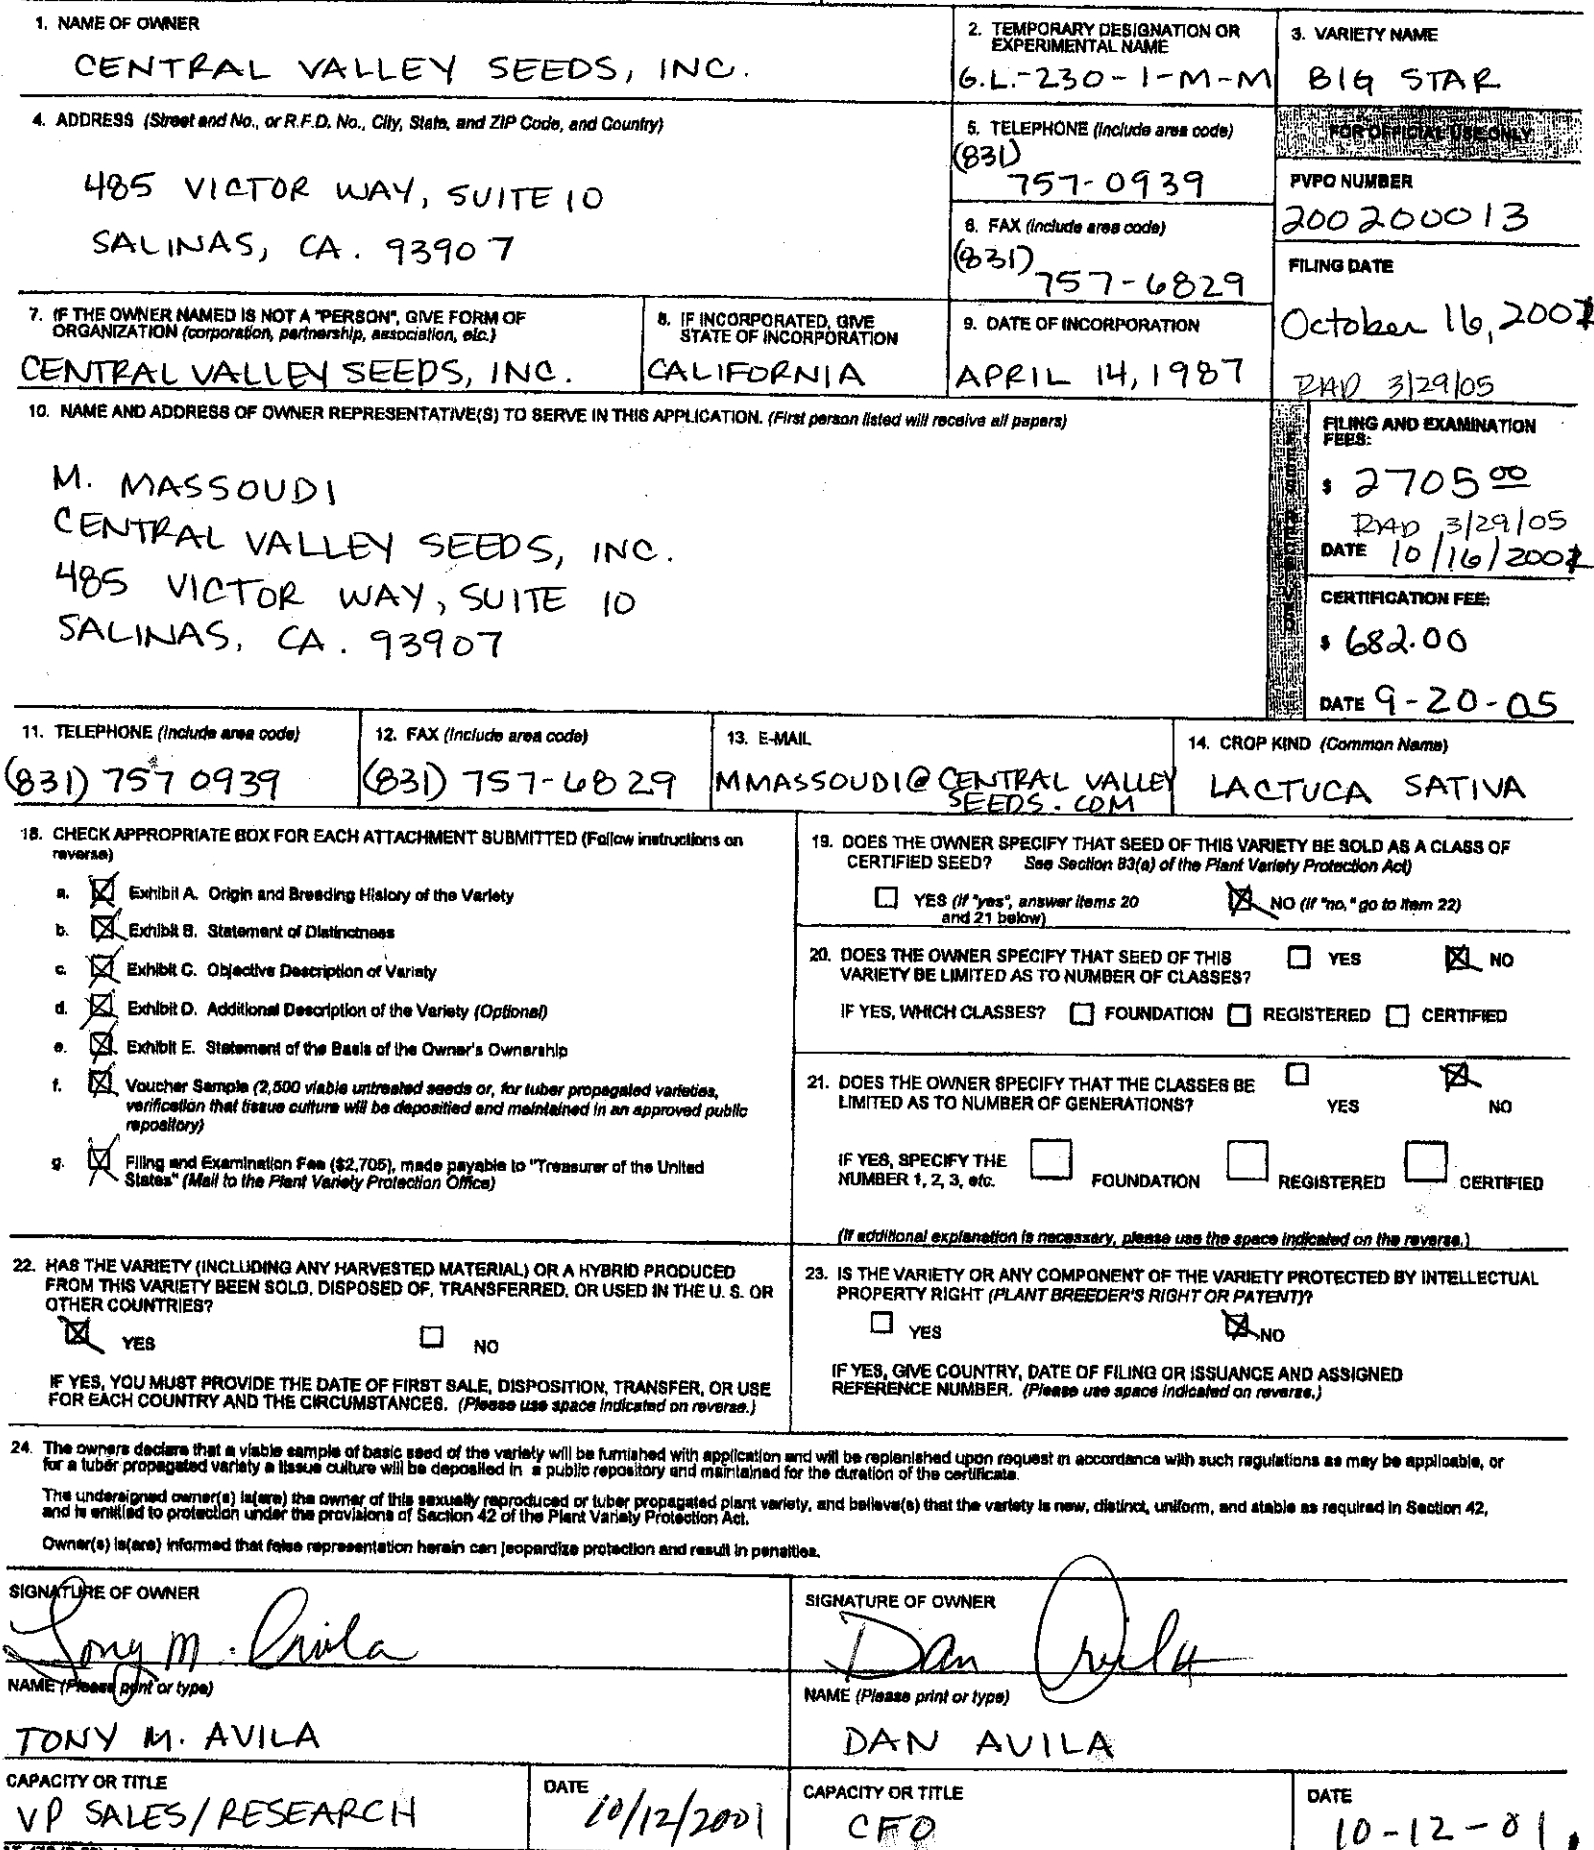 1. NAME OF OWNER
CENTRAL VALLEY SEEDS, INC.
2. TEMPORARY DESIGNATION OR
EXPERIMENTAL NAME
G.L.-230-1-M-M
3. VARIETY NAME
BIG STAR
4. ADDRESS (Street and No., or R.F.D. No., City, State, and ZIP Code, and Country)
485 VICTOR WAY, SUITE 10
SALINAS, CA. 93907
5. TELEPHONE (include area code)
(831)
757-0939
6. FAX (include area code)
(831)
757-6829
FOR OFFICIAL USE ONLY
PVPO NUMBER
200200013
FILING DATE
October 16, 2001
RAD 3/29/05
7. IF THE OWNER NAMED IS NOT A "PERSON", GIVE FORM OF
ORGANIZATION (corporation, partnership, association, etc.)
CENTRAL VALLEY SEEDS, INC.
8. IF INCORPORATED, GIVE
STATE OF INCORPORATION
CALIFORNIA
9. DATE OF INCORPORATION
APRIL 14, 1987
10. NAME AND ADDRESS OF OWNER REPRESENTATIVE(S) TO SERVE IN THIS APPLICATION. (First person listed will receive all papers)
M. MASSOUDI
CENTRAL VALLEY SEEDS, INC.
485 VICTOR WAY, SUITE 10
SALINAS, CA. 93907
FILING AND EXAMINATION
FEES:
$ 2705 00
RAD 3/29/05
DATE 10/16/2001
CERTIFICATION FEE:
$ 682.00
DATE 9-20-05
11. TELEPHONE (include area code)
(831) 757 0939
12. FAX (include area code)
(831) 757-6829
13. E-MAIL
MMASSOUDI@CENTRAL VALLEY
SEEDS.COM
14. CROP KIND (Common Name)
LACTUCA SATIVA
18. CHECK APPROPRIATE BOX FOR EACH ATTACHMENT SUBMITTED (Follow instructions on
reverse)
a. Exhibit A. Origin and Breeding History of the Variety
b. Exhibit B. Statement of Distinctness
c. Exhibit C. Objective Description of Variety
d. Exhibit D. Additional Description of the Variety (Optional)
e. Exhibit E. Statement of the Basis of the Owner's Ownership
f. Voucher Sample (2,500 viable untreated seeds or, for tuber propagated varieties,
verification that tissue culture will be deposited and maintained in an approved public
repository)
g. Filing and Examination Fee ($2,705), made payable to "Treasurer of the United
States" (Mail to the Plant Variety Protection Office)
19. DOES THE OWNER SPECIFY THAT SEED OF THIS VARIETY BE SOLD AS A CLASS OF
CERTIFIED SEED? See Section 83(a) of the Plant Variety Protection Act)
YES (If "yes", answer items 20
and 21 below)
NO (If "no," go to item 22)
20. DOES THE OWNER SPECIFY THAT SEED OF THIS
VARIETY BE LIMITED AS TO NUMBER OF CLASSES?
YES NO
IF YES, WHICH CLASSES? FOUNDATION REGISTERED CERTIFIED
21. DOES THE OWNER SPECIFY THAT THE CLASSES BE
LIMITED AS TO NUMBER OF GENERATIONS?
YES NO
IF YES, SPECIFY THE
NUMBER 1, 2, 3, etc. FOUNDATION REGISTERED CERTIFIED
(If additional explanation is necessary, please use the space indicated on the reverse.)
22. HAS THE VARIETY (INCLUDING ANY HARVESTED MATERIAL) OR A HYBRID PRODUCED
FROM THIS VARIETY BEEN SOLD, DISPOSED OF, TRANSFERRED, OR USED IN THE U. S. OR
OTHER COUNTRIES?
YES NO
IF YES, YOU MUST PROVIDE THE DATE OF FIRST SALE, DISPOSITION, TRANSFER, OR USE
FOR EACH COUNTRY AND THE CIRCUMSTANCES. (Please use space indicated on reverse.)
23. IS THE VARIETY OR ANY COMPONENT OF THE VARIETY PROTECTED BY INTELLECTUAL
PROPERTY RIGHT (PLANT BREEDER'S RIGHT OR PATENT)?
YES NO
IF YES, GIVE COUNTRY, DATE OF FILING OR ISSUANCE AND ASSIGNED
REFERENCE NUMBER. (Please use space indicated on reverse.)
24. The owners declare that a viable sample of basic seed of the variety will be furnished with application and will be replenished upon request in accordance with such regulations as may be applicable, or
for a tuber propagated variety a tissue culture will be deposited in a public repository and maintained for the duration of the certificate.
The undersigned owner(s) is(are) the owner of this sexually reproduced or tuber propagated plant variety, and believe(s) that the variety is new, distinct, uniform, and stable as required in Section 42,
and is entitled to protection under the provisions of Section 42 of the Plant Variety Protection Act.
Owner(s) is(are) informed that false representation herein can jeopardize protection and result in penalties.
SIGNATURE OF OWNER
Tony M. Avila
NAME (Please print or type)
TONY M. AVILA
CAPACITY OR TITLE
VP SALES/RESEARCH
DATE
10/12/2001
SIGNATURE OF OWNER
Dan Avila
NAME (Please print or type)
DAN AVILA
CAPACITY OR TITLE
CFO
DATE
10-12-01